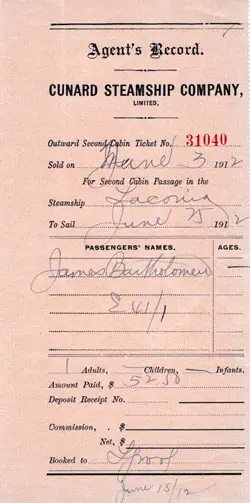 Agent's Record.
CUNARD STEAMSHIP COMPANY,
LIMITED.
Outward Second Cabin Ticket No. 31040
Sold on 3 1912
For Second Cabin Passage in the
Steamship Laconia
To Sail June 25 1912
PASSENGERS' NAMES. AGES.
James Bartholomew
E 41/1
1 Adults, — Children, — Infants.
Amount Paid, $ 52.50
Deposit Receipt No.
Commission, . $
Net, $
Booked to L'pool
June 15/12